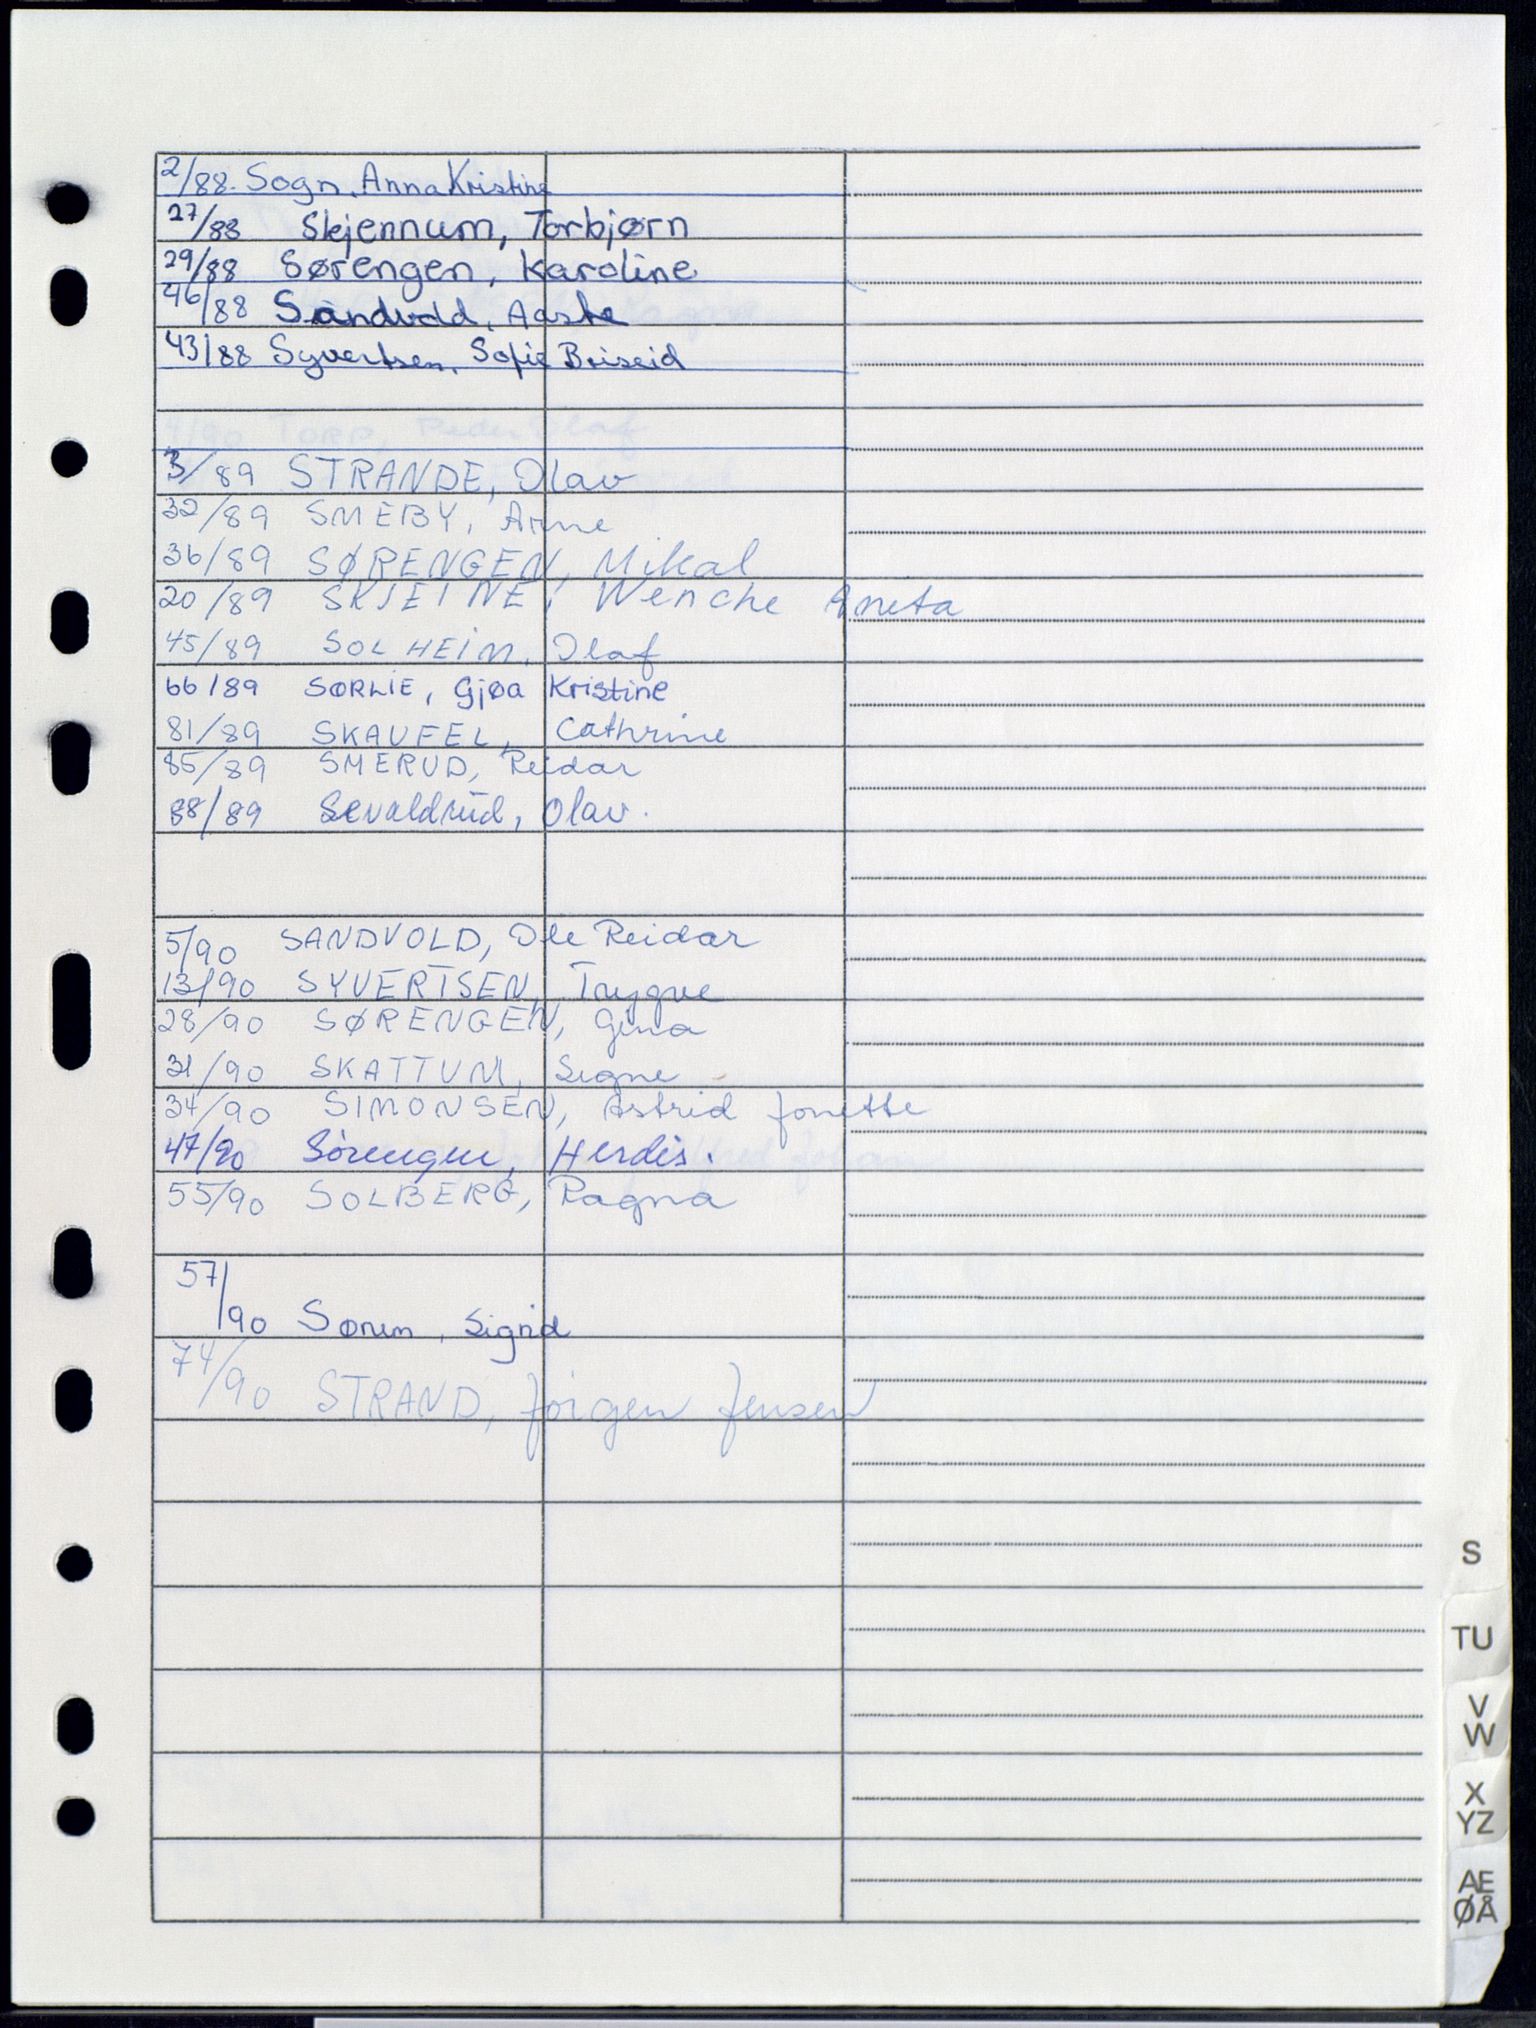 2/88. Sogn, Anna Kristine
27/88 Skjennum, Torbjørn
29/88 Sørengen, Karoline
46/88 Sandvold, Aaste
43/88 Syvertsen, Sofie Briseid
3/89 STRANDE, Olav
32/89 SMEBY, Anne
36/89 SØRENGEN, Mikal
20/89 SKJEINE, Wenche Aneta
45/89 SOLHEIM, Olaf
66/89 SØRLIE, Gjøa Kristine
81/89 SKAUFEL, Cathrine
85/89 SMERUD, Reidar
88/89 Sevaldrud, Olav.
5/90 SANDVOLD, Ole Reidar
13/90 SYVERTSEN, Trygve
28/90 SØRENGEN, Gina
31/90 SKATTUM, Signe
34/90 SIMONSEN, Astrid Jonette
47/90 Sörengen, Herdis.
55/90 SOLBERG, Ragna
57/90 Sørum, Sigrid
74/90 STRAND, Jørgen Jensen
S
TU
V
W
X
YZ
AE
ØÅ